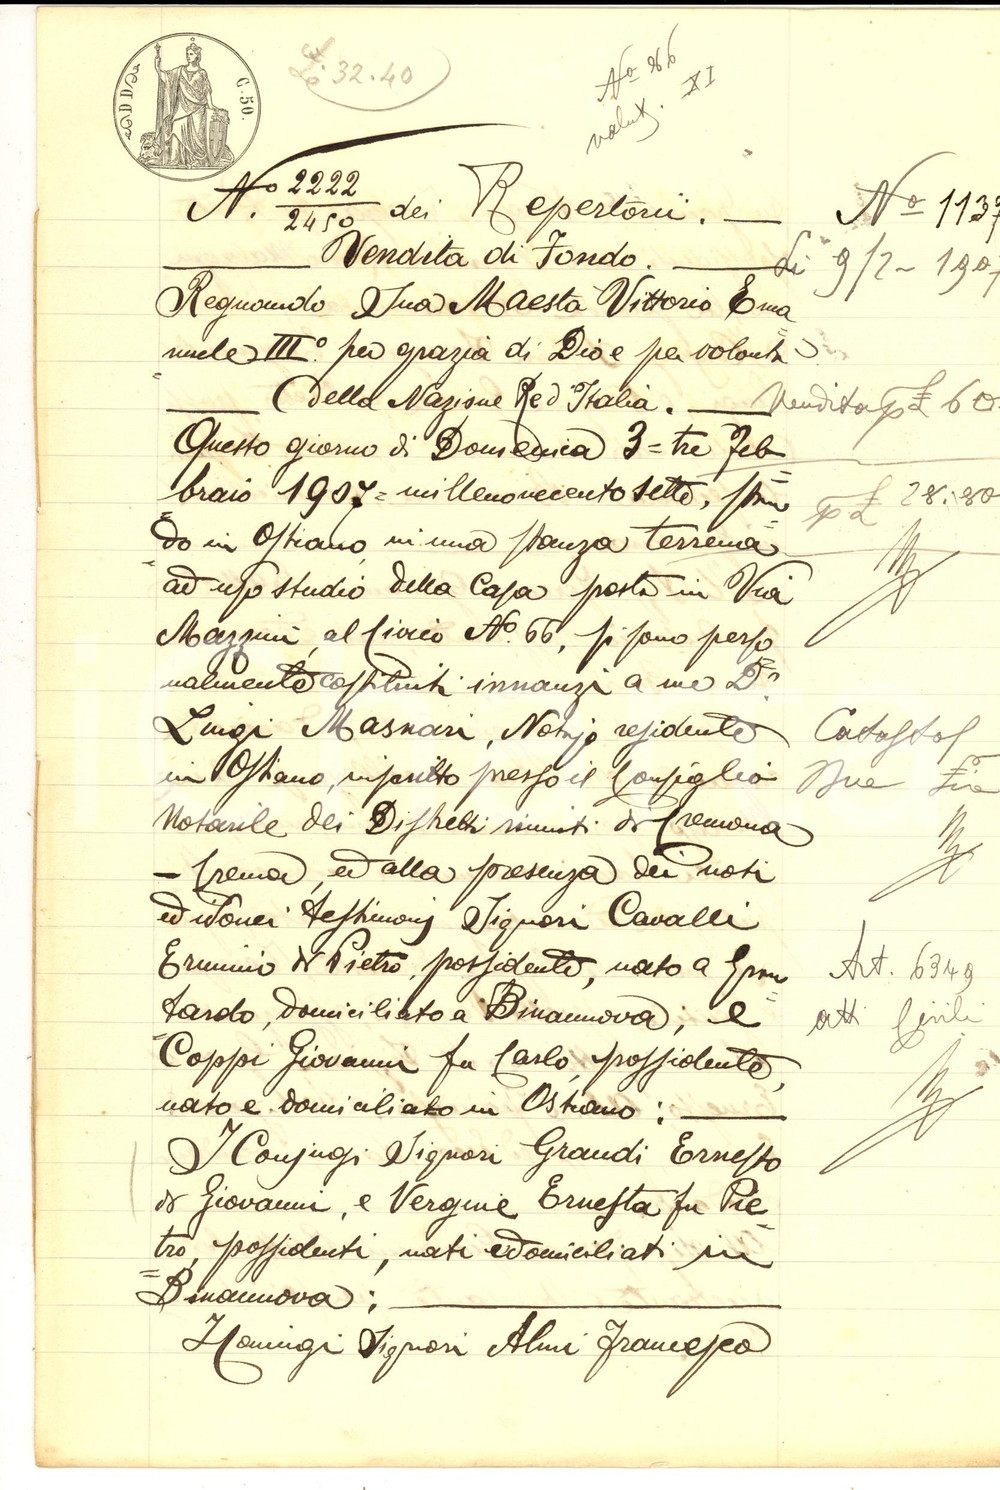 C. 50.
£ 32.40
Nº 266
XI
Nº 1137
N.º 2222/2450 dei Repertorii.
li 9/2 - 1907
Vendita di Fondo.
Regnando Sua Maestà Vittorio Ema
nuele IIIº. per grazia di Dio e per volontà
della Nazione Re d'Italia.
Vendita p £ 60.
Questo giorno di Domenica 3 = tre Feb
braio 1907 = millenovecentosette, stan
p £ 28.80
do in Ostiano, in una stanza terrena
ad uso studio della Casa posta in Via
Mazzini, al Civico Nº. 66, si sono perso
nalmente costituiti innanzi a me Dr.
Luigi Masnari, Notajo residente
in Ostiano, inscritto presso il Consiglio
Notarile dei Distretti riuniti di Cremona
- Crema, ed alla presenza dei noti
ed idonei testimonj Signori Cavalli
Erminio di Pietro, possidente, nato a Gron
tardo, domiciliato a Binanuova; e
Art. 6349
atti Civili
Coppi Giovanni fu Carlo, possidente,
nato e domiciliato in Ostiano:
I Conjugi Signori Grandi Ernesto
di Giovanni, e Vergine Ernesta fu Pie
tro, possidenti, nati e domiciliati in
Binanuova;
I Coniugi Signori Almi Francesco